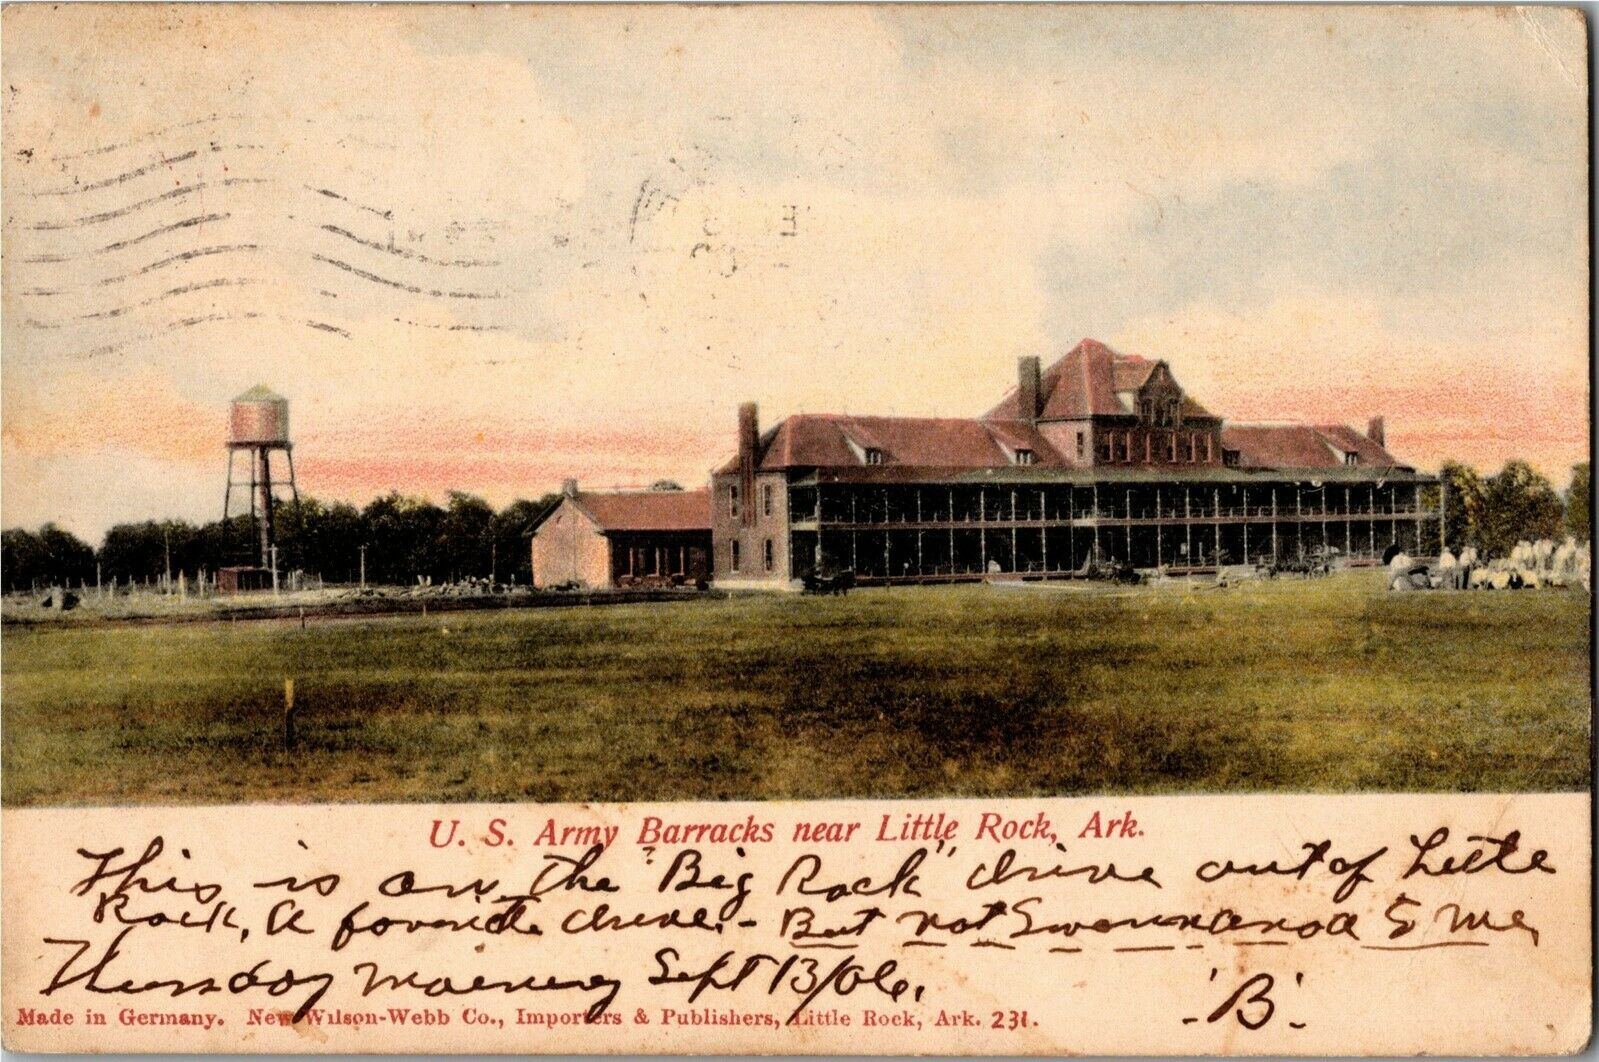 U. S. Army Barracks near Little Rock, Ark.
This is on the "Big Rock" drive out of Little
Rock, A favorite drive. - But not Swannanoa to me,
Thursday morning Sept 13/06.
'B'
Made in Germany. New Wilson-Webb Co., Importers & Publishers, Little Rock, Ark. 231.